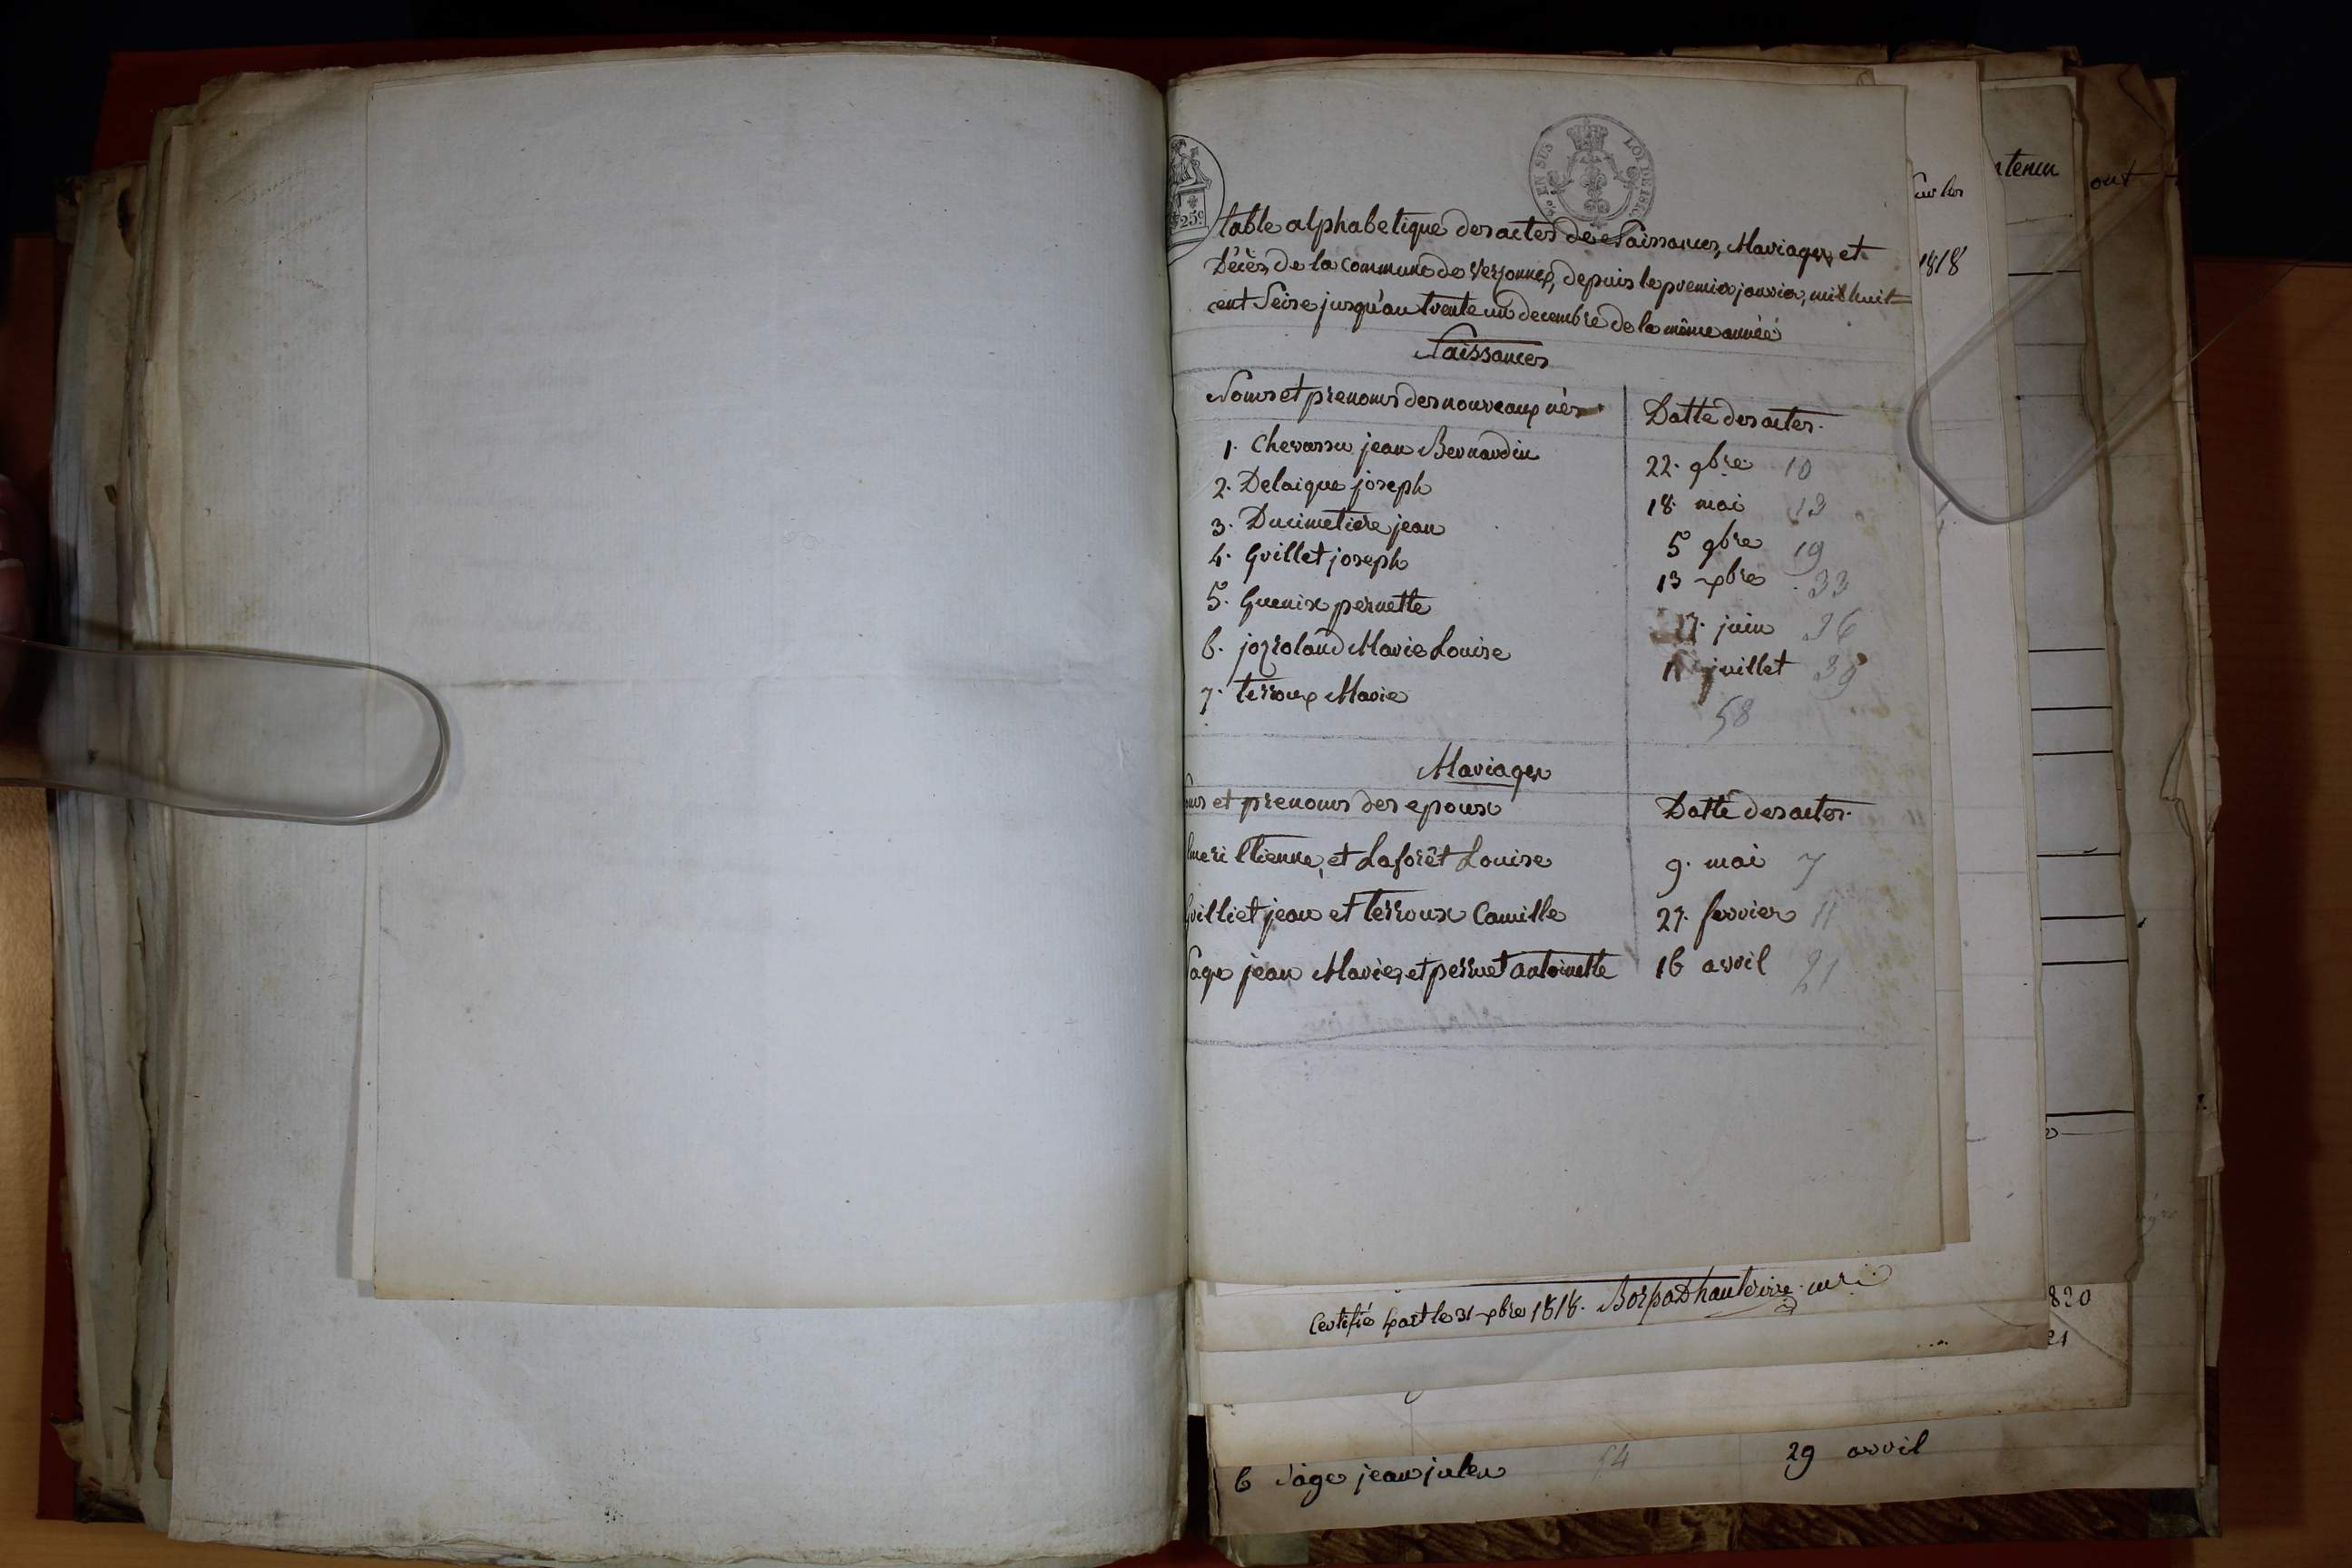 EN SUS LOI DE
25c
table alphabetique des actes de Naissances, Mariages et
Décès de la commune de Versonnex, depuis le premier janvier, mil huit
cent Seise jusqu'au trente un decembre de la même année
Naissances
Noms et prenoms des nouveaux nés Datte des actes.
1. Chevassu jean Bernardin 22. 9bre 10
2. Delaique joseph 18. mai 13
3. Ducimetiere jean 5 9bre 19
4. Gvillet joseph 13 xbre 33
5. Guenix pernette 17. juin 36
6. jozroland Marie Louise juillet 39
7. terroux Marie 58
Mariages
oms et prenoms des epoux Datte des actes.
Etienne, et Laforêt Louise 9. mai 7
Gvilliet jean et terroux Camille 27. fevrier 11
Sage jean Marie, et perruet antoinette 16 avril 21
Certifié le 31 xbre 1818.
6 Sage jean julien 54 29 avril
sur les
1818
ntenu
ont
820
21